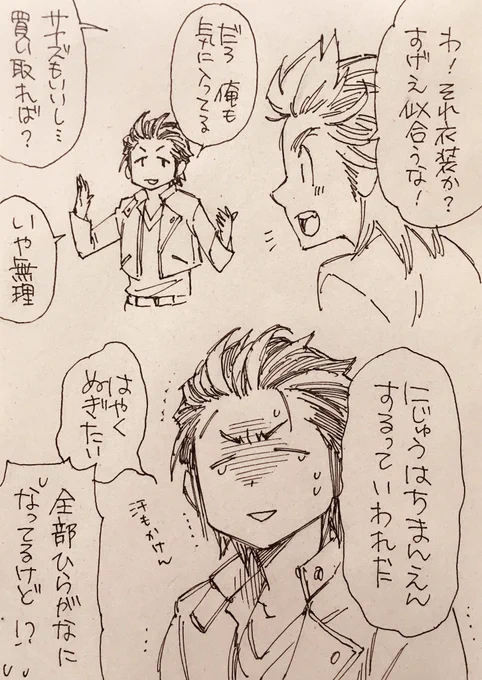 わ！それ衣装か？
すげえ似合うな！
だろ 俺も
気に入ってる
サイズもいいし…
買い取れば？
いや無理
にじゅうはちまんえん
するっていわれた
はやく
ぬぎたい
汗もかけん
全部ひらがなに
なってるけど!?